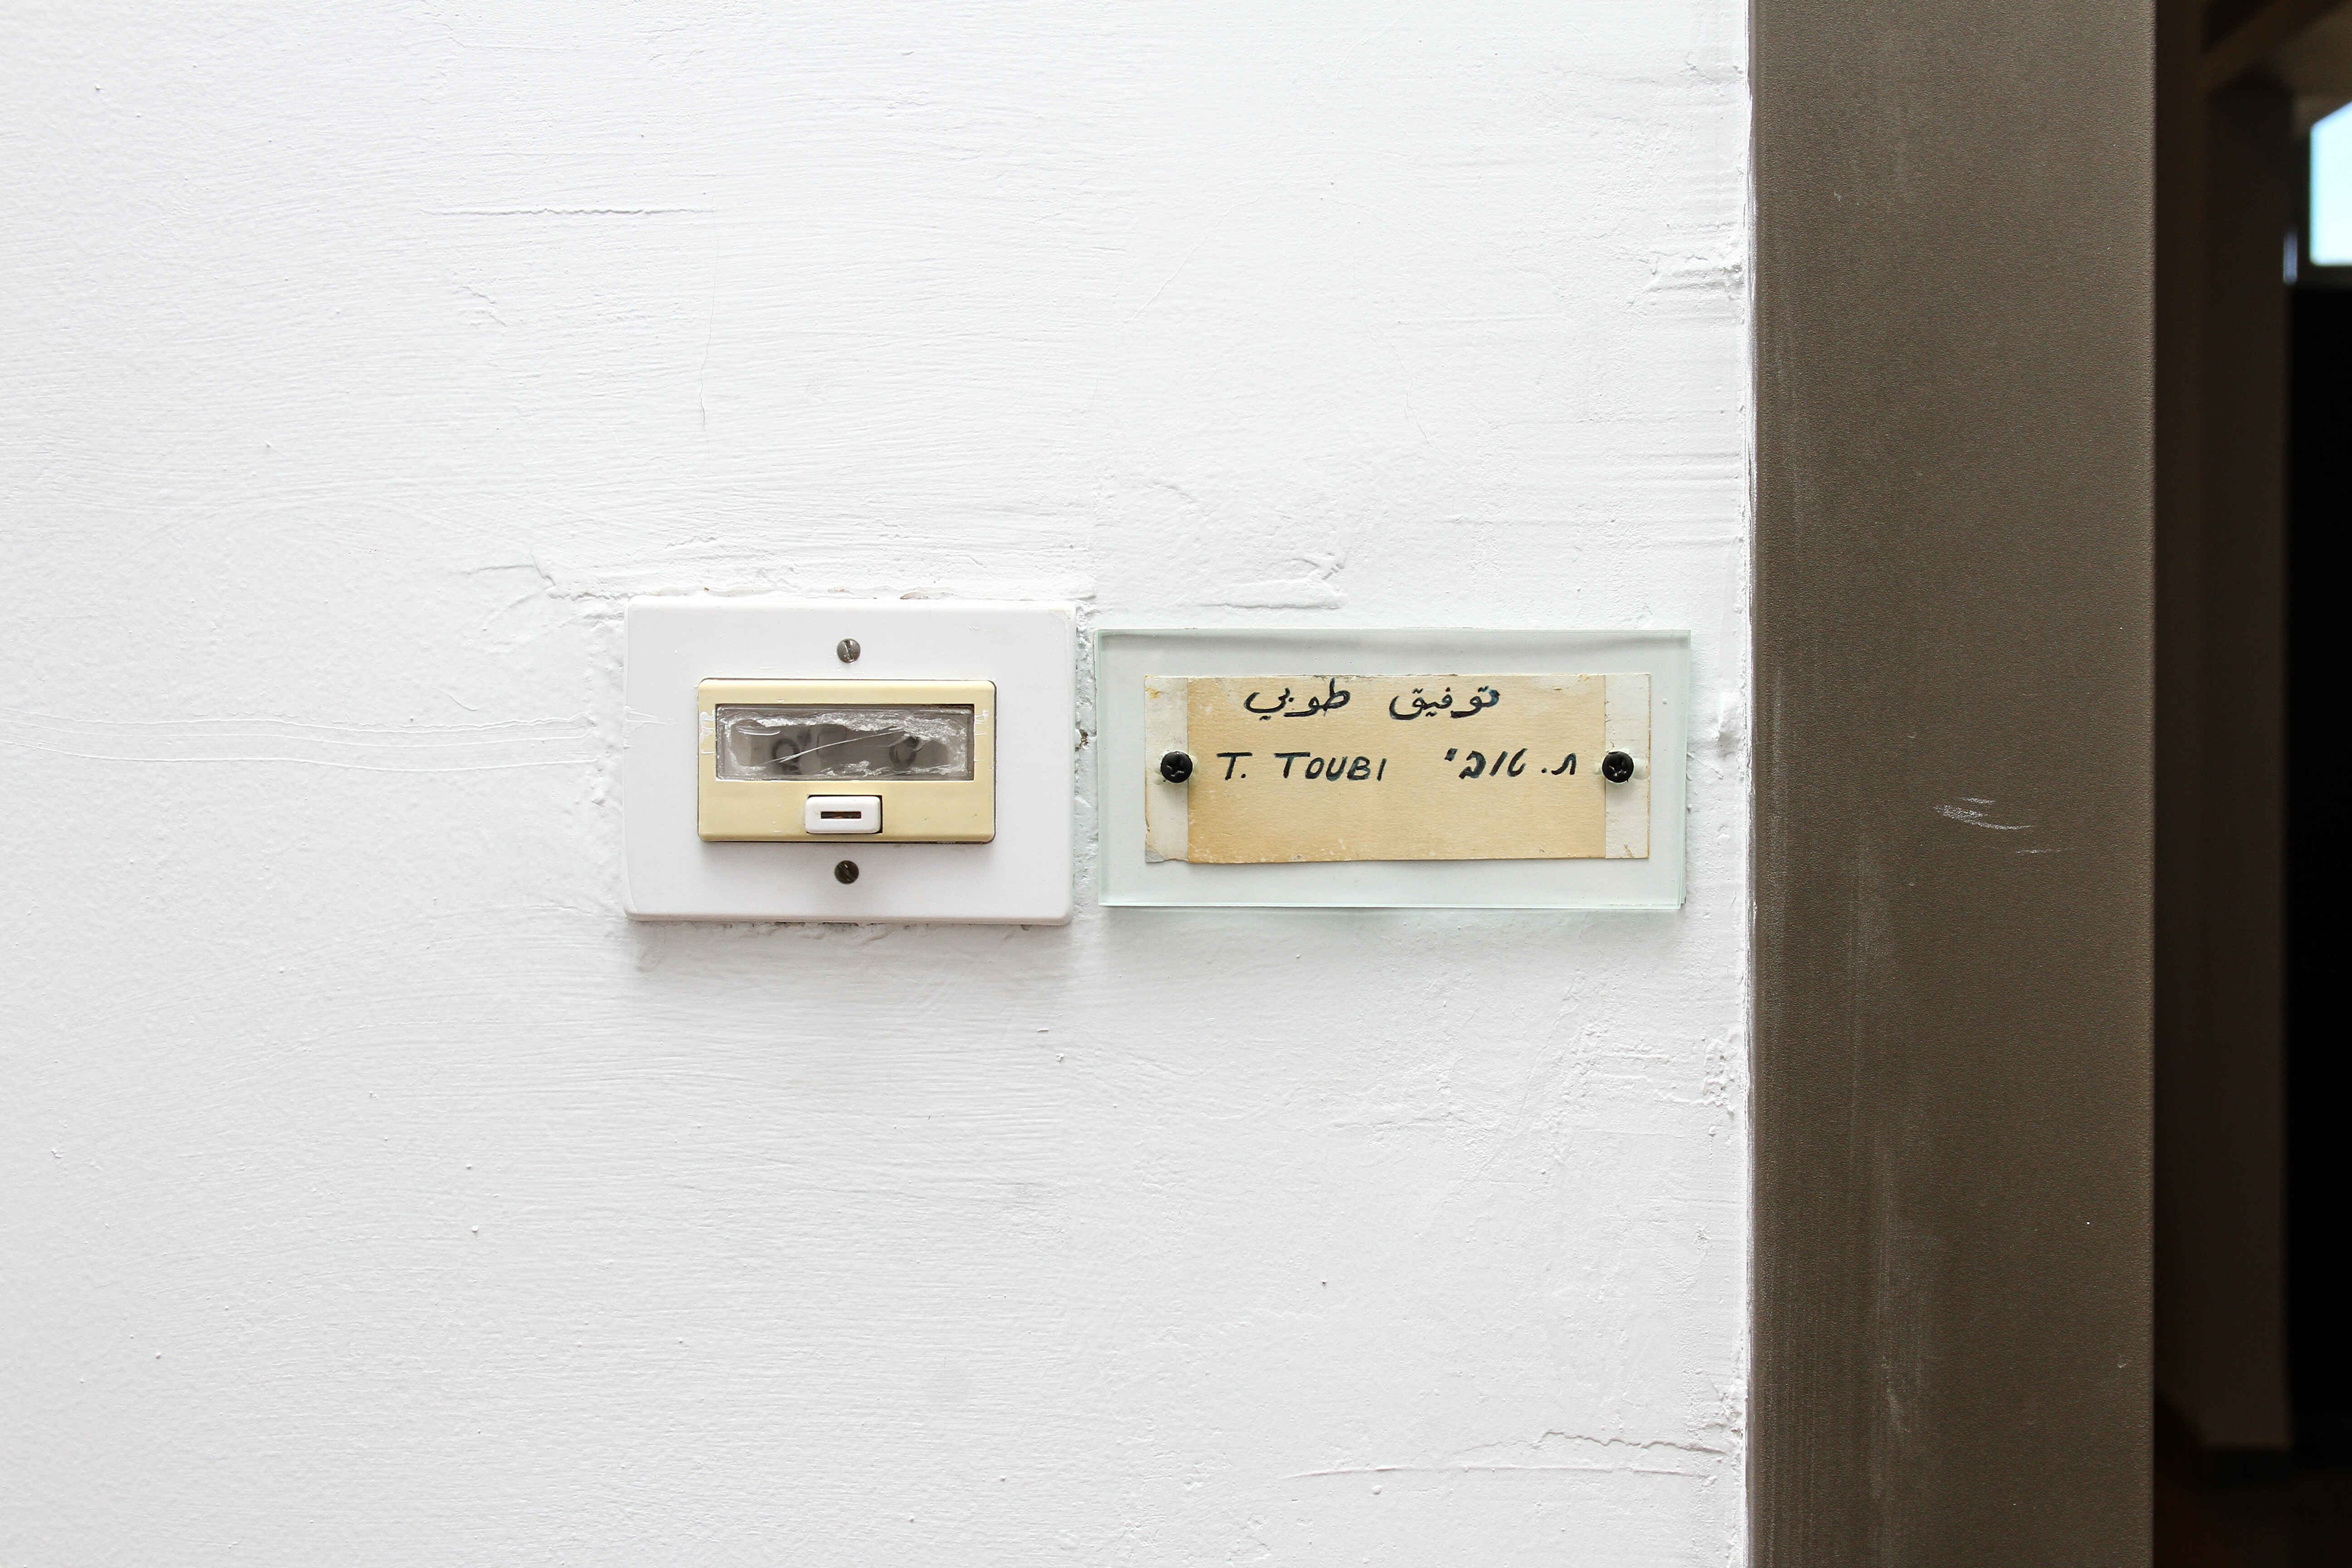 توفيق طوبي
T. TOUBI ת. טובי